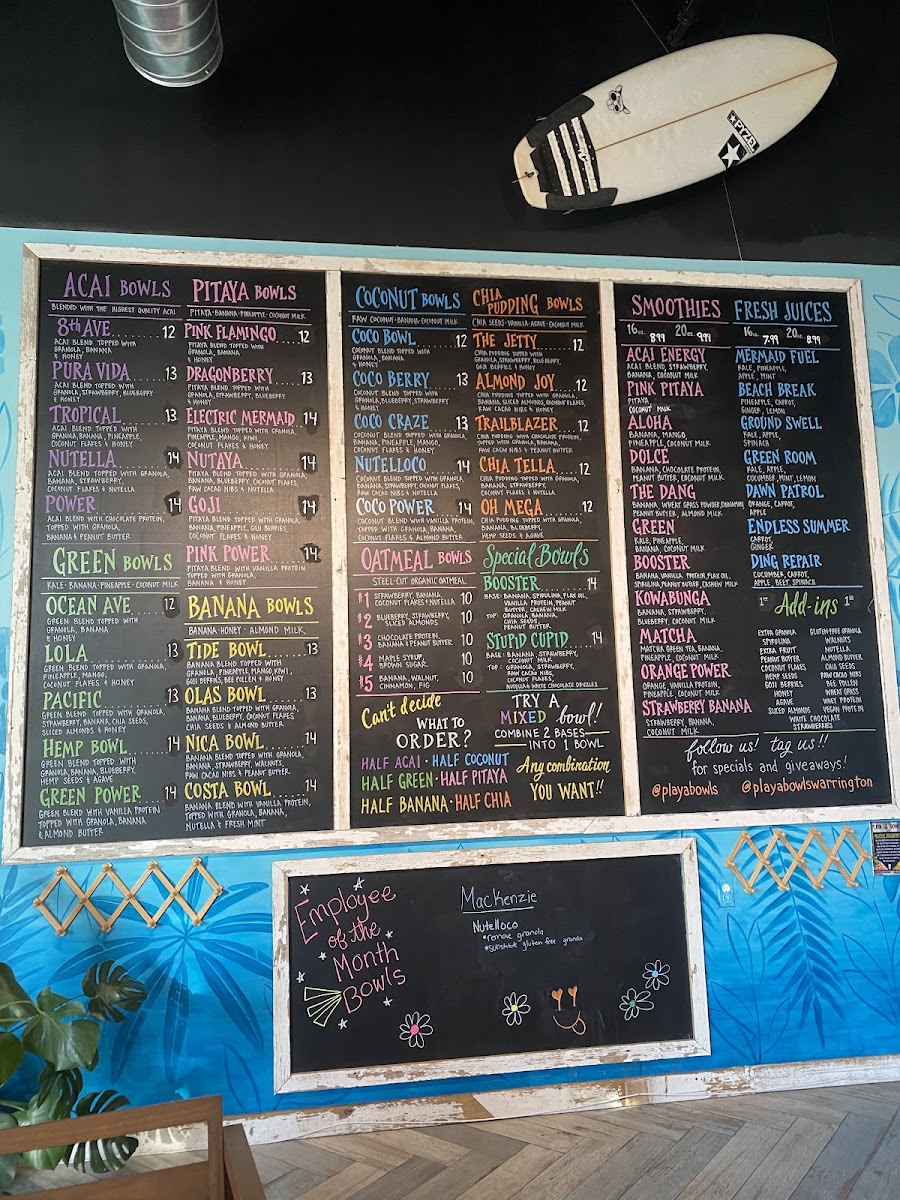 PYZEL
ACAI BOWLS
BLENDED WITH THE HIGHEST QUALITY ACAI
8th AVE 12
ACAI BLEND TOPPED WITH
GRANOLA, BANANA
& HONEY
PURA VIDA 13
ACAI BLEND TOPPED WITH
GRANOLA, STRAWBERRY, BLUEBERRY
& HONEY
TROPICAL 13
ACAI BLEND TOPPED WITH
GRANOLA, BANANA, PINEAPPLE,
COCONUT FLAKES & HONEY
NUTELLA 14
ACAI BLEND TOPPED WITH GRANOLA,
BANANA, STRAWBERRY,
COCONUT FLAKES & NUTELLA
POWER 14
ACAI BLEND WITH CHOCOLATE PROTEIN,
TOPPED WITH GRANOLA,
BANANA & PEANUT BUTTER
GREEN BOWLS
KALE · BANANA · PINEAPPLE · COCONUT MILK
OCEAN AVE 12
GREEN BLEND TOPPED WITH
GRANOLA, BANANA
& HONEY
LOLA 13
GREEN BLEND TOPPED WITH GRANOLA,
PINEAPPLE, MANGO,
COCONUT FLAKES & HONEY
PACIFIC 13
GREEN BLEND TOPPED WITH GRANOLA,
STRAWBERRY, BANANA, CHIA SEEDS,
SLICED ALMONDS & HONEY
HEMP BOWL 14
GREEN BLEND TOPPED WITH
GRANOLA, BANANA, BLUEBERRY,
HEMP SEEDS & AGAVE
GREEN POWER 14
GREEN BLEND WITH VANILLA PROTEIN
TOPPED WITH GRANOLA, BANANA
& ALMOND BUTTER
PITAYA BOWLS
PITAYA · BANANA · PINEAPPLE · COCONUT MILK
PINK FLAMINGO 12
PITAYA BLEND TOPPED WITH
GRANOLA, BANANA
& HONEY
DRAGONBERRY 13
PITAYA BLEND TOPPED WITH
GRANOLA, STRAWBERRY, BLUEBERRY
& HONEY
ELECTRIC MERMAID 14
PITAYA BLEND TOPPED WITH GRANOLA,
PINEAPPLE, MANGO, KIWI,
COCONUT FLAKES & HONEY
NUTAYA 14
PITAYA BLEND TOPPED WITH GRANOLA,
BANANA, BLUEBERRY, COCONUT FLAKES,
RAW CACAO NIBS & NUTELLA
GOJI 14
PITAYA BLEND TOPPED WITH GRANOLA,
BANANA, PINEAPPLE, GOJI BERRIES,
COCONUT FLAKES & HONEY
PINK POWER 14
PITAYA BLEND WITH VANILLA PROTEIN
TOPPED WITH GRANOLA,
BANANA & HONEY
BANANA BOWLS
BANANA · HONEY · ALMOND MILK
TIDE BOWL 13
BANANA BLEND TOPPED WITH
GRANOLA, PINEAPPLE, MANGO, KIWI,
GOJI BERRIES, BEE POLLEN & HONEY
OLAS BOWL 13
BANANA BLEND TOPPED WITH GRANOLA,
BANANA, BLUEBERRY, COCONUT FLAKES,
CHIA SEEDS & ALMOND BUTTER
NICA BOWL 14
BANANA BLEND TOPPED WITH GRANOLA,
BANANA, STRAWBERRY, WALNUTS,
RAW CACAO NIBS & PEANUT BUTTER
COSTA BOWL 14
BANANA BLEND WITH VANILLA PROTEIN,
TOPPED WITH GRANOLA, BANANA,
NUTELLA & FRESH MINT
COCONUT BOWLS
RAW COCONUT · BANANA · COCONUT MILK
COCO BOWL 12
COCONUT BLEND TOPPED WITH
GRANOLA, BANANA
& HONEY
COCO BERRY 13
COCONUT BLEND TOPPED WITH
GRANOLA, BLUEBERRY, STRAWBERRY
& HONEY
COCO CRAZE 13
COCONUT BLEND TOPPED WITH GRANOLA,
BANANA, PINEAPPLE, MANGO,
COCONUT FLAKES & HONEY
NUTELLOCO 14
COCONUT BLEND TOPPED WITH GRANOLA,
BANANA, STRAWBERRY, COCONUT FLAKES,
RAW CACAO NIBS & NUTELLA
COCO POWER 14
COCONUT BLEND WITH VANILLA PROTEIN,
TOPPED WITH GRANOLA, BANANA,
COCONUT FLAKES & ALMOND BUTTER
CHIA PUDDING BOWLS
CHIA SEEDS · VANILLA · AGAVE · COCONUT MILK
THE JETTY 12
CHIA PUDDING TOPPED WITH
GRANOLA, STRAWBERRY, BLUEBERRY,
GOJI BERRIES & HONEY
ALMOND JOY 12
CHIA PUDDING TOPPED WITH GRANOLA,
BANANA, SLICED ALMONDS, COCONUT FLAKES,
RAW CACAO NIBS & HONEY
TRAILBLAZER 12
CHIA PUDDING WITH CHOCOLATE PROTEIN,
TOPPED WITH GRANOLA, BANANA,
RAW CACAO NIBS & PEANUT BUTTER
CHIA TELLA 12
CHIA PUDDING TOPPED WITH GRANOLA,
BANANA, STRAWBERRY,
COCONUT FLAKES & NUTELLA
OH MEGA 12
CHIA PUDDING TOPPED WITH GRANOLA,
BANANA, BLUEBERRY,
HEMP SEEDS & AGAVE
OATMEAL BOWLS
STEEL-CUT ORGANIC OATMEAL
#1 STRAWBERRY, BANANA, 10
COCONUT FLAKES & NUTELLA
#2 BLUEBERRY, STRAWBERRY, 10
SLICED ALMONDS
#3 CHOCOLATE PROTEIN, 10
BANANA & PEANUT BUTTER
#4 MAPLE SYRUP 10
BROWN SUGAR
#5 BANANA, WALNUT, 10
CINNAMON, FIG
Special Bowls
BOOSTER 14
BASE: BANANA, SPIRULINA, FLAX OIL,
VANILLA PROTEIN, PEANUT
BUTTER, CASHEW MILK
TOP: GRANOLA, BANANA,
CHIA SEEDS,
PEANUT BUTTER
STUPID CUPID 14
BASE: BANANA, STRAWBERRY,
COCONUT MILK
TOP: GRANOLA, STRAWBERRY,
RAW CACAO NIBS,
COCONUT FLAKES,
NUTELLA & WHITE CHOCOLATE DRIZZLES
Can't decide
WHAT TO
ORDER?
TRY A
MIXED bowl!
COMBINE 2 BASES
INTO 1 BOWL
HALF ACAI · HALF COCONUT
HALF GREEN · HALF PITAYA
HALF BANANA · HALF CHIA
Any combination
YOU WANT!!
SMOOTHIES
16 oz. 8.99 20 oz. 9.99
ACAI ENERGY
ACAI BLEND, STRAWBERRY,
BANANA, COCONUT MILK
PINK PITAYA
PITAYA,
COCONUT MILK
ALOHA
BANANA, MANGO,
PINEAPPLE, COCONUT MILK
DOLCE
BANANA, CHOCOLATE PROTEIN,
PEANUT BUTTER, COCONUT MILK
THE DANG
BANANA, WHEAT GRASS POWDER, CINNAMON,
PEANUT BUTTER, ALMOND MILK
GREEN
KALE, PINEAPPLE,
BANANA, COCONUT MILK
BOOSTER
BANANA, VANILLA PROTEIN, FLAX OIL,
SPIRULINA, PEANUT BUTTER, CASHEW MILK
KOWABUNGA
BANANA, STRAWBERRY,
BLUEBERRY, COCONUT MILK
MATCHA
MATCHA GREEN TEA, BANANA,
PINEAPPLE, COCONUT MILK
ORANGE POWER
ORANGE, VANILLA PROTEIN,
PINEAPPLE, COCONUT MILK
STRAWBERRY BANANA
STRAWBERRY, BANANA,
COCONUT MILK
FRESH JUICES
16 oz. 7.99 20 oz. 8.99
MERMAID FUEL
KALE, PINEAPPLE,
APPLE, MINT
BEACH BREAK
PINEAPPLE, CARROT,
GINGER, LEMON
GROUND SWELL
KALE, APPLE,
SPINACH
GREEN ROOM
KALE, APPLE,
CUCUMBER, MINT, LEMON
DAWN PATROL
ORANGE, CARROT,
APPLE
ENDLESS SUMMER
CARROT,
GINGER
DING REPAIR
CUCUMBER, CARROT,
APPLE, BEET, SPINACH
Add-ins
EXTRA GRANOLA
SPIRULINA
EXTRA FRUIT
PEANUT BUTTER
COCONUT FLAKES
HEMP SEEDS
GOJI BERRIES
HONEY
AGAVE
SLICED ALMONDS
GLUTEN FREE GRANOLA
WALNUTS
NUTELLA
ALMOND BUTTER
CHIA SEEDS
RAW CACAO NIBS
BEE POLLEN
WHEAT GRASS
WHEY PROTEIN
VEGAN PROTEIN
WHITE CHOCOLATE
STRAWBERRIES
follow us! tag us!!
for specials and giveaways!
@playabowls @playabowlswarrington
Employee
of the
Month
Bowls
MacKenzie
Nutelloco
*remove granola
*substitute gluten free granola